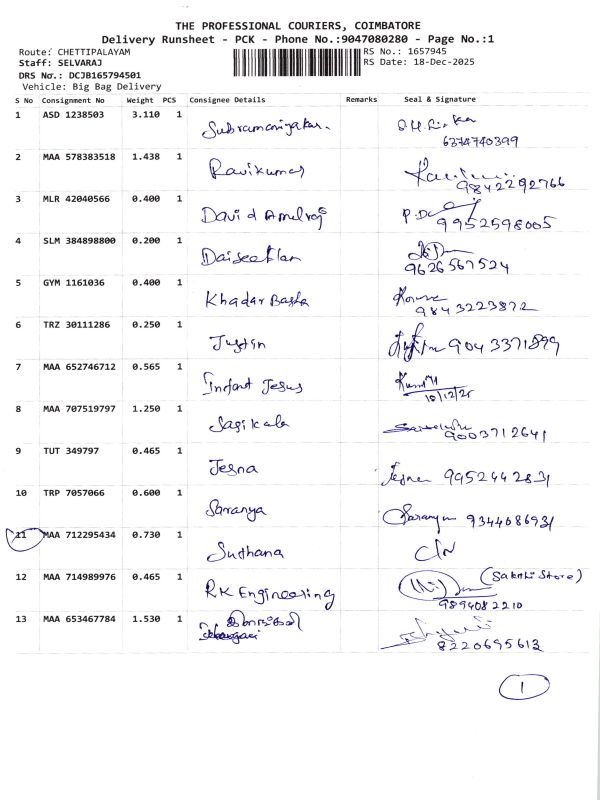 THE PROFESSIONAL COURIERS, COIMBATORE
Delivery Runsheet - PCK - Phone No.:9047080280 - Page No.:1
Route: CHETTIPALAYAM RS No.: 1657945
Staff: SELVARAJ RS Date: 18-Dec-2025
DRS No.: DCJB165794501
Vehicle: Big Bag Delivery
S No Consignment No Weight PCS Consignee Details Remarks Seal & Signature
1 ASD 1238503 3.110 1
6374740399
2 MAA 578383518 1.438 1 Ravikumar
9842292766
3 MLR 42040566 0.400 1 David Amulraj
9952598005
4 SLM 384898800 0.200 1
9626567524
5 GYM 1161036 0.400 1 Khadar Basha
9843223872
6 TRZ 30111286 0.250 1 Justin 9043371899
7 MAA 652746712 0.565 1 Infant Jesus
8 MAA 707519797 1.250 1 Sasikala
9003712641
9 TUT 349797 0.465 1 Jesna Jesna 9952442831
10 TRP 7057066 0.600 1 Saranya Saranya 9344086931
11 MAA 712295434 0.730 1 Suthana
12 MAA 714989976 0.465 1 RK Engineering (Sakthi Store)
9894082210
13 MAA 653467784 1.530 1
8220695613
1